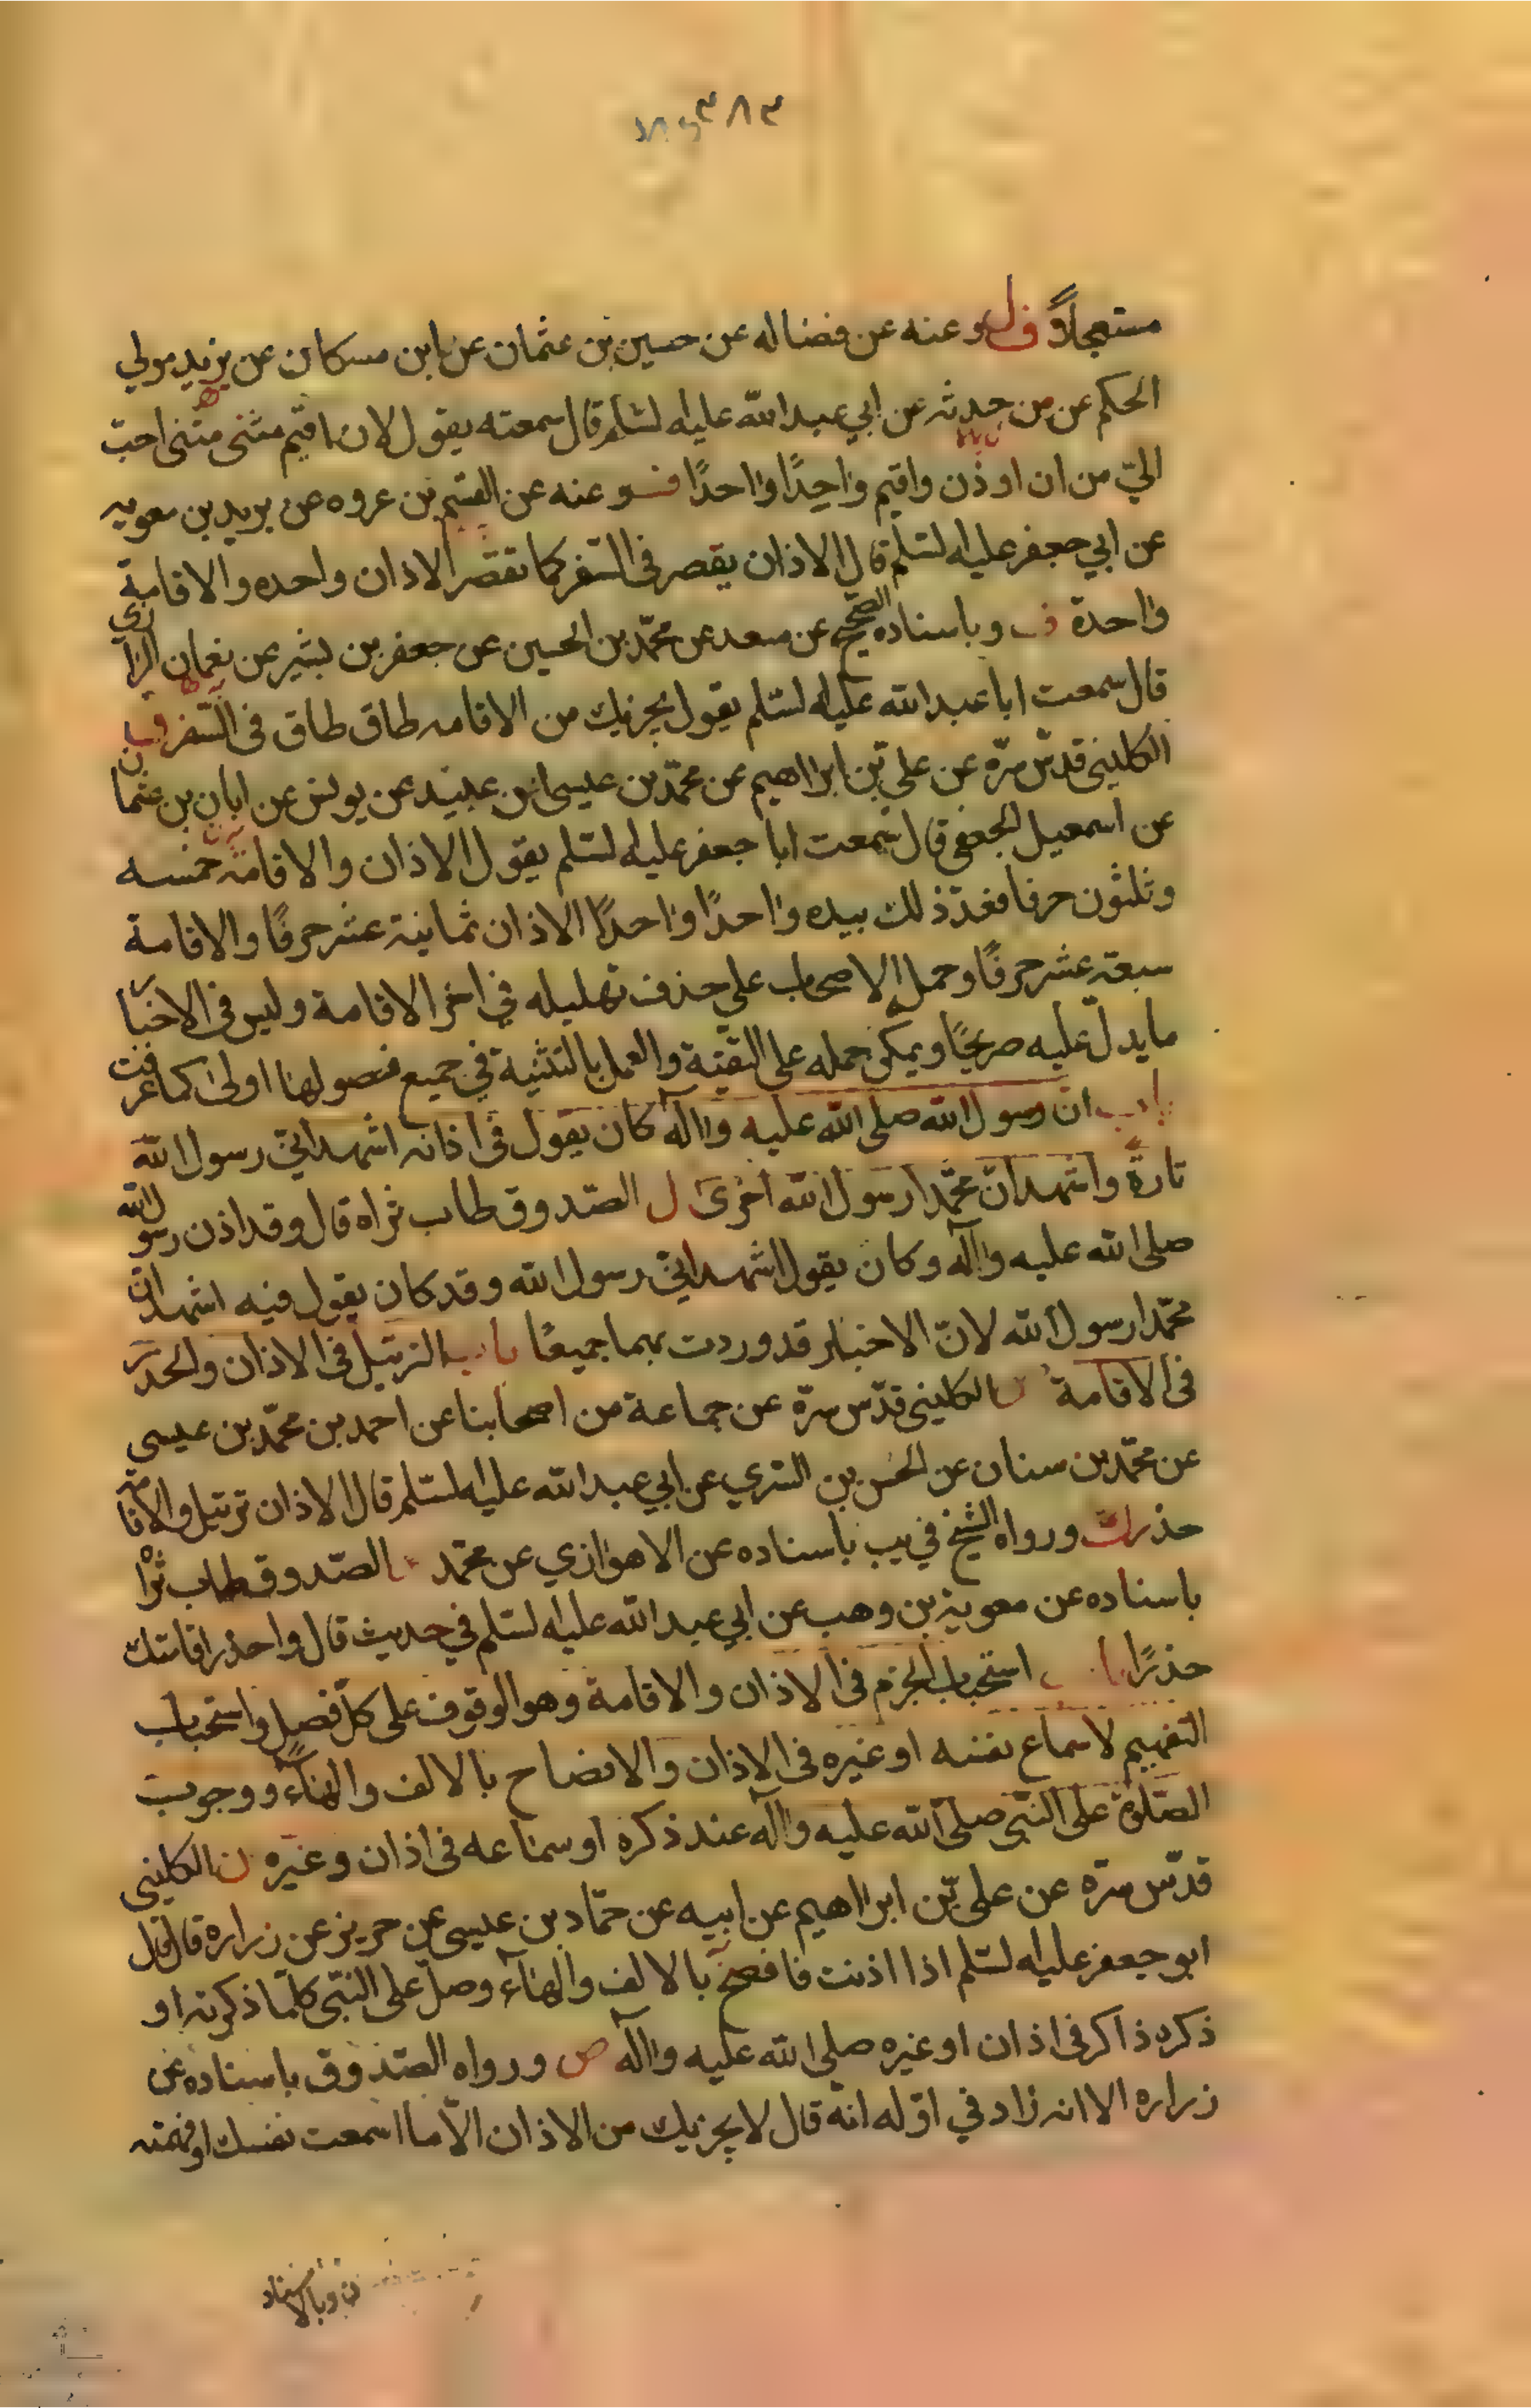 مستعجلاً ف ل وعنه عن فضاله عن حسين بن عثمان عن ابن مسكان عن يزيد مولي
الحكم عن من حدثه عن ابي عبدالله عليه لسلم قال سمعته يقول لان اقيم مثنى مثنى احب
اليّ من ان اوذن واقيم واحِدًا واحدًا ف وعنه عن القسم بن عروه عن بريد بن معويه
عن ابي جعفر عليه لسلم قال الاذان يقصر في السّفر كما تقصّر الاذان واحده والاقامة
واحدة ف وباسناده الصحيح عن سعد عن محمّد بن الحسين عن جعفر بن بشير عن نعمان الرازي
قال سمعت ابا عبدالله عليه لسلم يقول يجزيك من الاقامه طاق طاق في السّفر
الكليني قدّس سرّه عن علي بن ابراهيم عن محمّد بن عيسى بن عبيد عن يونس عن ابان بن عثمان
عن اسمعيل الجعفي قال سمعت ابا جعفر عليه لسلم يقول الاذان والاقامة خمسه
وثلثون حرفا فعدّ ذلك بيده واحدًا واحدًا الاذان ثمانية عشر حرفًا والاقامة
سبعة عشر حرفًا وحمله الاصحاب على حذف تهليله في اخر الاقامة وليس في الاخبار
ما يدلّ عليه صريحًا ويمكن حمله على التقيّة والعمل بالتثنية في جميع فصولها اولى كما عرفت
باب انّ رسول الله صلى الله عليه واله كان يقول في اذانه اشهد انّي رسول الله
تارةً واشهد انّ محمّدا رسول الله اخرى ل الصّدوق طاب ثراه قال وقد اذن رسول الله
صلى الله عليه وآله وكان يقول اشهد انّي رسول الله وقد كان يقول فيه اشهد انّ
محمّدا رسول الله لانّ الاخبار قد وردت بهما جميعًا باب الترتيل في الاذان والحدر
في الاقامة ن الكليني قدّس سرّه عن جماعة من اصحابنا عن احمد بن محمّد بن عيسى
عن محمّد بن سنان عن الحسن بن السّري عن ابي عبدالله عليه لسلم قال الاذان ترتيل والاقامة
حذر ورواه الشيخ في يب باسناده عن الاهوازي عن محمّد الصّدوق طاب ثراه
باسناده عن معوية بن وهب عن ابي عبدالله عليه لسلم في حديث قال واحذر اقامتك
حذرًا باب استحباب الجزم في الاذان والاقامة وهو الوقوف على كلّ فصل واستحباب
التفهيم لاسماع نفسه او غيره في الاذان والافصاح بالالف والهآء ووجوب
الصّلوة على النّبي صلّى الله عليه وآله عند ذكره او سماعه في اذان وغيره ن الكليني
قدّس سرّه عن علي بن ابراهيم عن ابيه عن حمّاد بن عيسى عن حريز عن زراره قال قال
ابو جعفر عليه لسلم اذا اذنت فافصح بالالف والهآء وصلّ على النّبي كلّما ذكرته او
ذكره ذاكر في اذان او غيره صلى الله عليه وآله ص ورواه الصّدوق باسناده عن
زراره الا انه زاد في اوّله انّه قال لا يجزيك من الاذان الّا ما اسمعت نفسك او فهمته
ن وبالاسناد